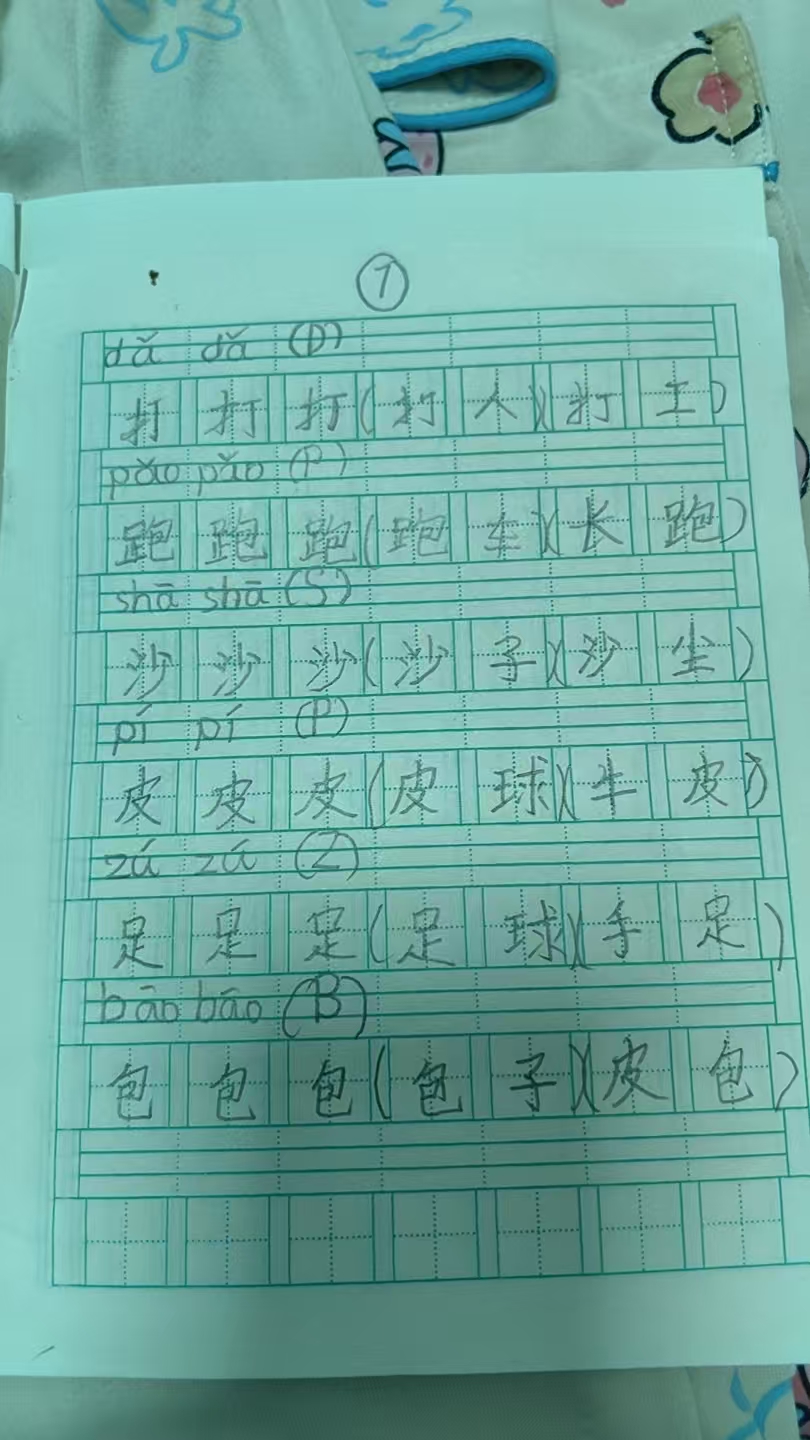 ①
dǎ dǎ (D)
打 打 打(打 人)(打 工)
pǎo pǎo (P)
跑 跑 跑(跑 车)(长 跑)
shā shā (S)
沙 沙 沙(沙 子)(沙 尘)
pí pí (P)
皮 皮 皮(皮 球)(牛 皮)
zú zú (Z)
足 足 足(足 球)(手 足)
bāo bāo (B)
包 包 包(包 子)(皮 包)